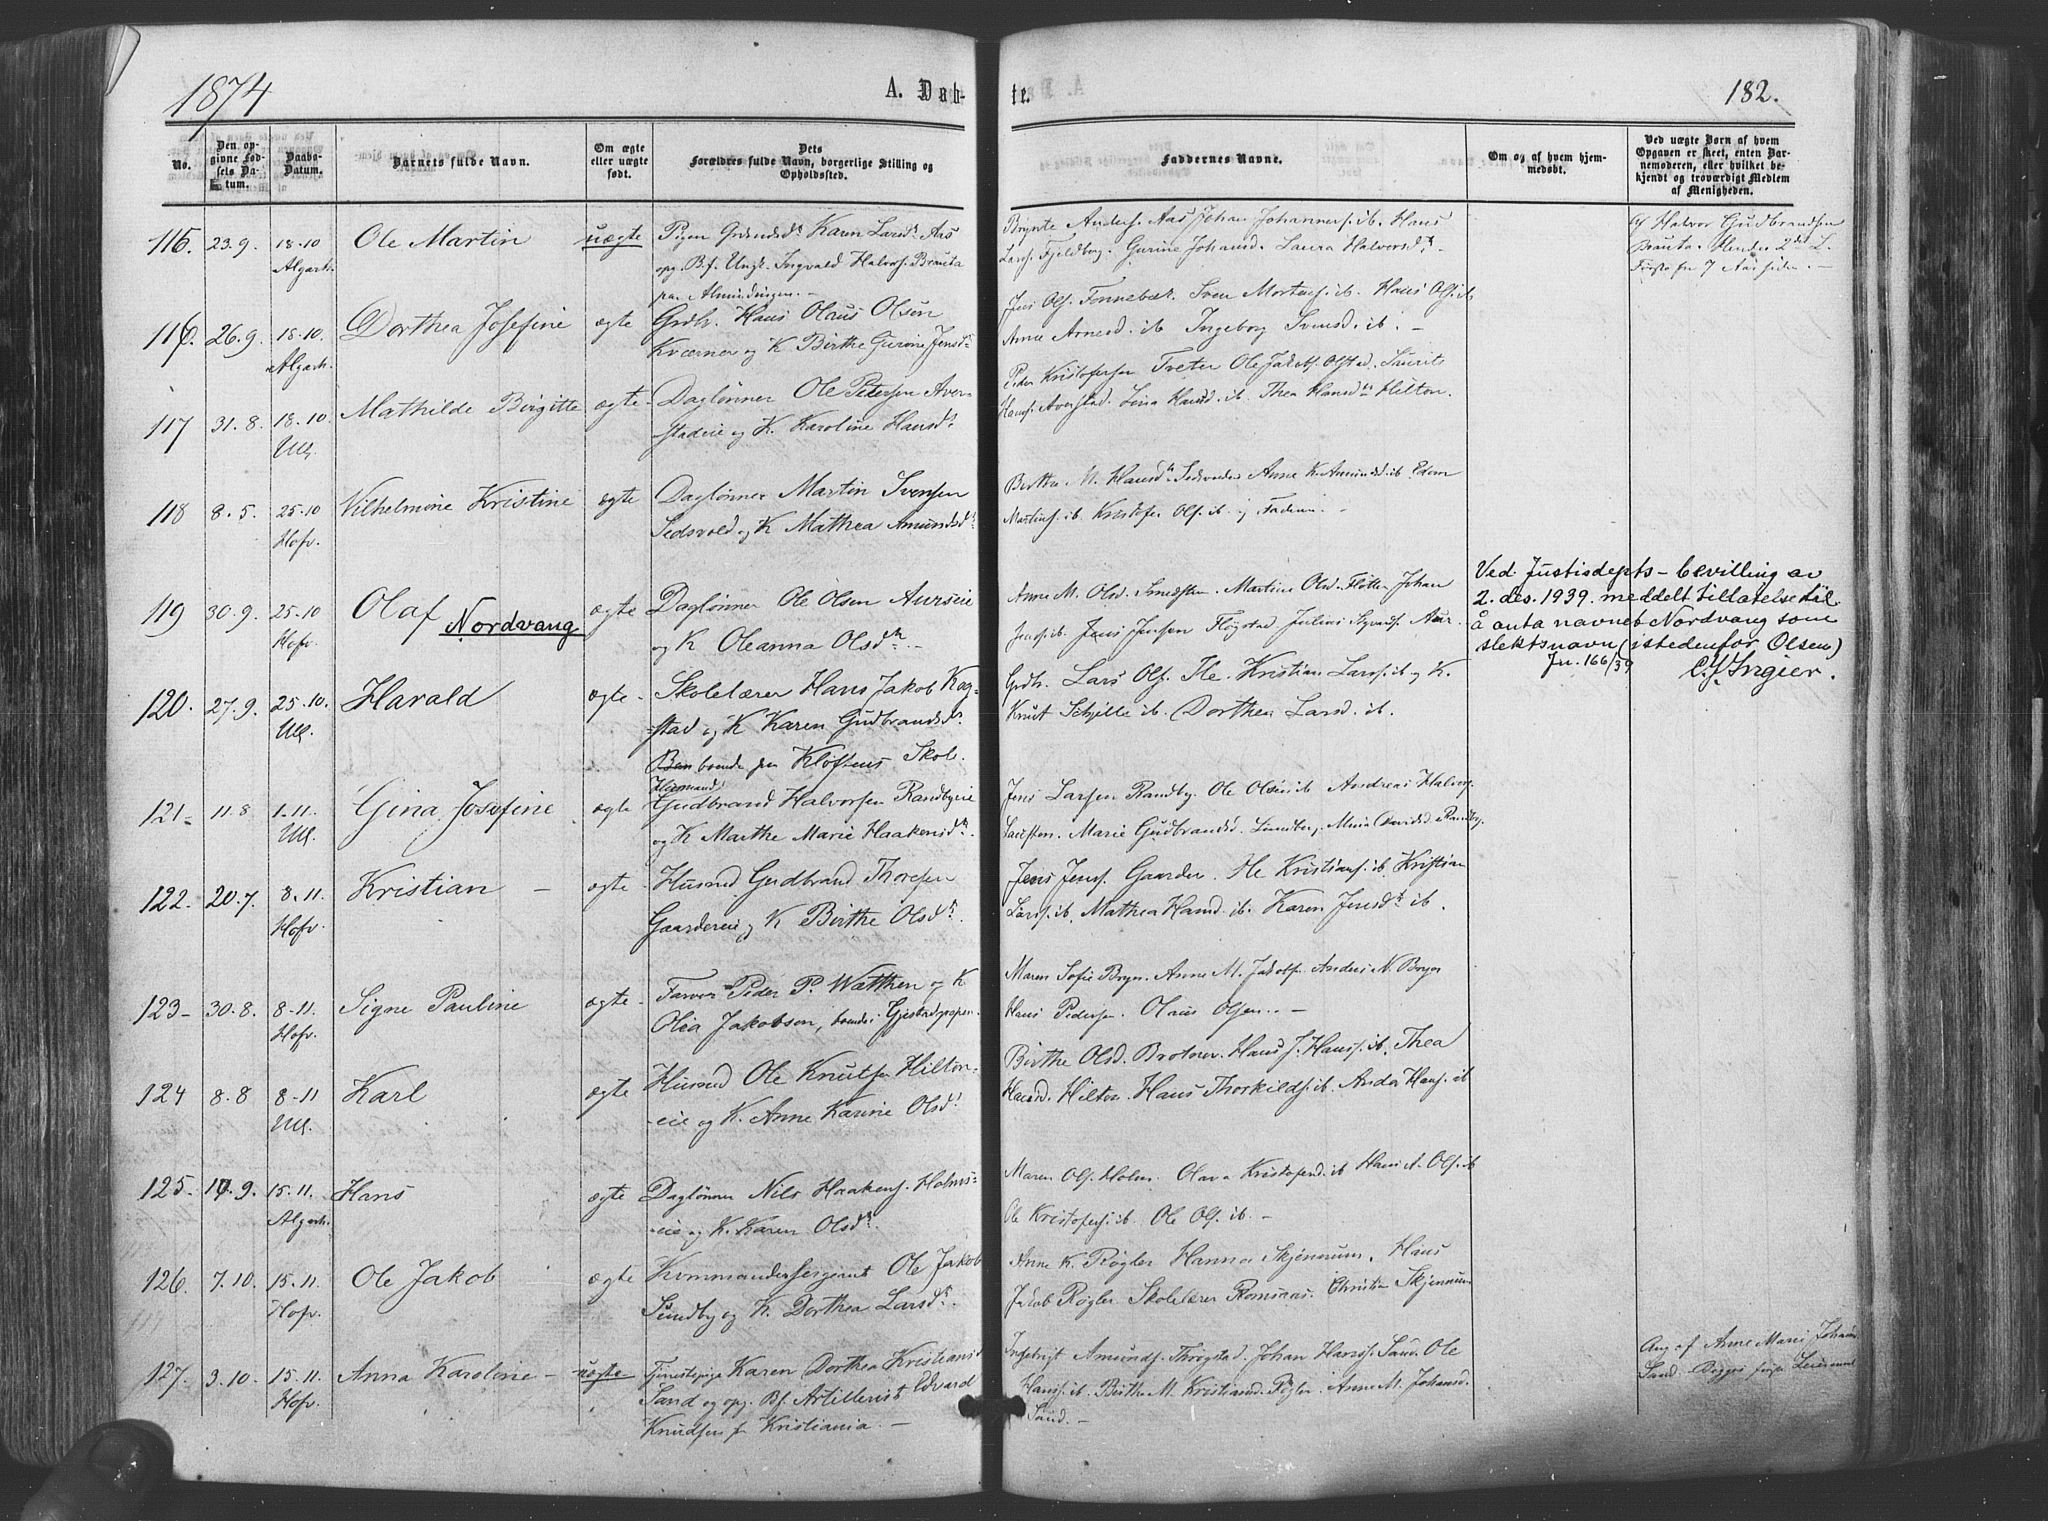 1874
A. Døb-
te.
182.
No.
Den op-
givne Fød-
sels Da-
tum.
Daabs-
Datum.
Barnets fulde Navn.
Om ægte
eller uægte
født.
Dets
Forældres fulde Navn, borgerlige Stilling og
Opholdssted.
Faddernes Navne.
Om og af hvem hjem-
medøbt.
Ved uægte Børn af hvem
Opgaven er skeet, enten Bar-
nemoderen, eller hvilket be-
kjendt og troværdigt Medlem
af Menigheden.
115. 23.9. 18.10 Ole Martin uægte Pigen Karen Larsdr Aas
Algarh. opg. B.f. Ungk. Ingvald Halvors. Brauta
paa Almindingen. –
Brynte Anders. Aas Johan Johannes. ib. Hans
Lars. Fjeldborg. Gurine Johansd. Laura Halvorsdr
af Halvor Gudbrandsen
Brauta. Hendes 2det L.
Første for 7 Aar siden. –
116. 26.9. 18.10. Dorthea Josefine ægte Grdbr. Hans Olaus Olsen
Algarh. Kværner og K. Birthe Gurine Jensdr
Jens Ols. Tonnebæk. Sven Mortens. ib. Hans Ols. ib
Anne Arnesd. ib Ingeborg Svensd. ib. –
117 31.8. 18.10. Mathilde Birgitte ægte Daglønner Ole Petersen Aver-
Ull. stadeie og K. Karoline Hansdr
Peder Kristofersen Tveter Ole Jakobs. Olstad. Laurits
Hans. Averstad. Lina Hansd. ib. Thea Hansdr Hilton.
118 8.5. 25.10 Vilhelmine Kristine ægte Daglønner Martin Svensen
Hofv. Sedsvold og K Mathea Amundsdr
Birthe M. Hansdr Sedsvold. Anne K. Amundsd. ib Edvin
Martins. ib. Kristofer Ols. ib. og Faderen. –
119 30.9. 25.10 Olaf Nordvang ægte Daglønner Ole Olsen Aurseie
Hofv. og K Oleanna Olsdr –
Anne M. Olsd. Smedsten. Martine Olsd. Fløtten Johan
Jens. ib. Jens Jensen Fløgstad Julius Syvers. Aur.
Ved Justisdepts – bevilling av
2. des. 1939. meddelt tillatelse til
å anta navnet Nordvang som
slektsnavn (istedenfor Olsen)
Jn. 166/39 C. J. Ingier.
120. 27.9. 25.10. Harald ægte Skolelærer Hans Jakob Kog-
Ull. stad og K Karen Gudbrandsdr
boende paa Kløftens Skole.
Grdbr. Lars Ols. Ile. Kristian Lars. ib og K.
Knut Schjille ib. Dorthea Larsd. ib.
121 – 11.8 1.11. Gina Josefine ægte Husmand
Gudbrand Halvorsen Randbyeie
Ull. og K Marthe Marie Haakensdr
Jens Larsen Randby. Ole Olsen ib Andreas Halvors.
Marie Gudbrandsd. Lundby, Randby.
122. 20.7. 8.11. Kristian – ægte. Husmd Gudbrand Thoresen
Hofv. Gaardereie og K Birthe Olsdr.
Jens Jens. Gaarder. Ole Kristians. ib. Kristian
Lars. ib. Mathea Hansd. ib. Karen Jensdr ib.
123 – 30.8. 8-11. Signe Pauline ægte. Farver Peder P. Watthen og K
Hofv. Olea Jakobsen, boende i
Maren Sofie Bryn. Anne M. Jakobs. Anders N. Bryn
Hans Pedersen. Olaus Olsen. –
124 8.8 8-11 Karl ægte Husmd Ole Knutsen Hilton-
Ull. eie og K. Anne Karine Olsdr
Birthe Olsd. Brotner. Hans J. Hans. ib. Thea
Hansd. Hilton. Hans Thorkilds. ib. Anders Hans. ib
125 – 17.9. 15.11. Hans ægte Daglønner Nils Haakens. Holms-
Algarh. eie og K. Karen Olsdr.
Maren Ols. Holm. Olava Kristofersd. ib Hans A. Ols. ib
Ole Kristofers. ib. Ole Ols. ib. –
126. 7.10. 15.11. Ole Jakob ægte Kommandersergeant Ole Jakob
Hofv. Sundby og K. Dorthea Larsdr.
Anne K. Røgler Hanna Skjennum. Hans
Jakob Røgler. Skolelærer Romsaas. Christian Skjennum
127. 3.10. 15.11. Anna Karoline – uægte Tjenestepige Karen Dorthea Kristiansd
Hofv. Sand og opg. Bf. Artillerist Edvard
Knudsen fr Kristiania. –
Ingebrigt Amunds. Throgstad. Johan Hans. Sand. Ole
Hans. ib. Birthe M. Kristiansd. Røgler. Anne M. Johansd.
Sand. –
Ang. af Anne Marie Johansd
Sand. Begges første Leiermaal